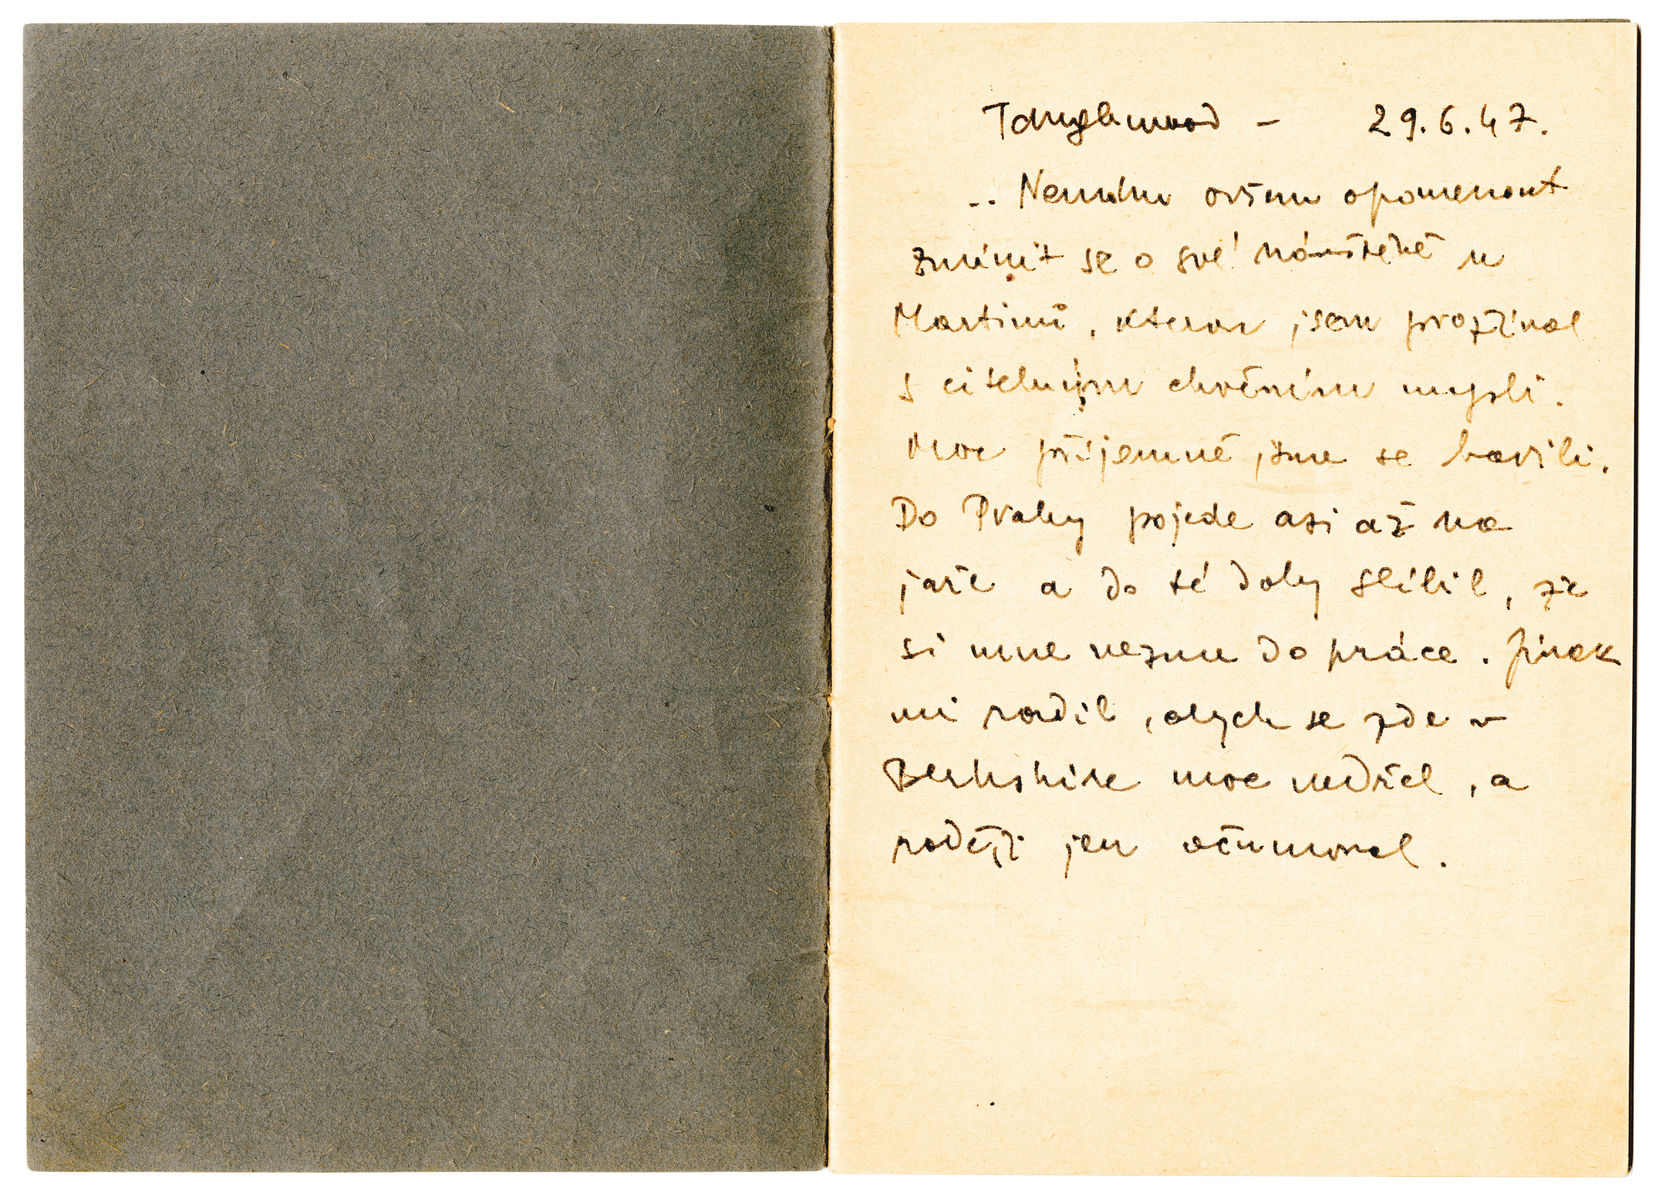 Tanglewood - 29.6.47.
.. Nemíním ovšem opomenout
zmínit se o své návštěvě u
Martinů, kterou jsem prožíval
s citelným chvěním mysli.
Moc příjemně jsme se bavili.
Do Prahy pojede asi až na
jaře a do té doby slíbil, že
si mne vezme do práce. Jinak
mi radil, abych se zde v
Berkshire moc nedřel, a
raději jen očumoval.